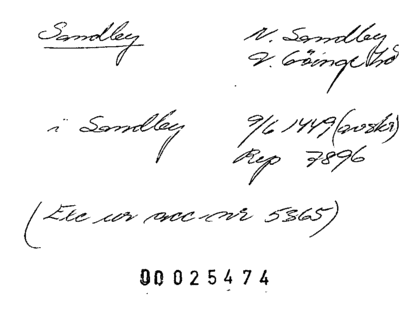 Sandby N. Sandby
V. Göinge hd
i Sandby 9/6 1449 (avskr)
Rep 7896
(Exc ur acc nr 5365)
00025474